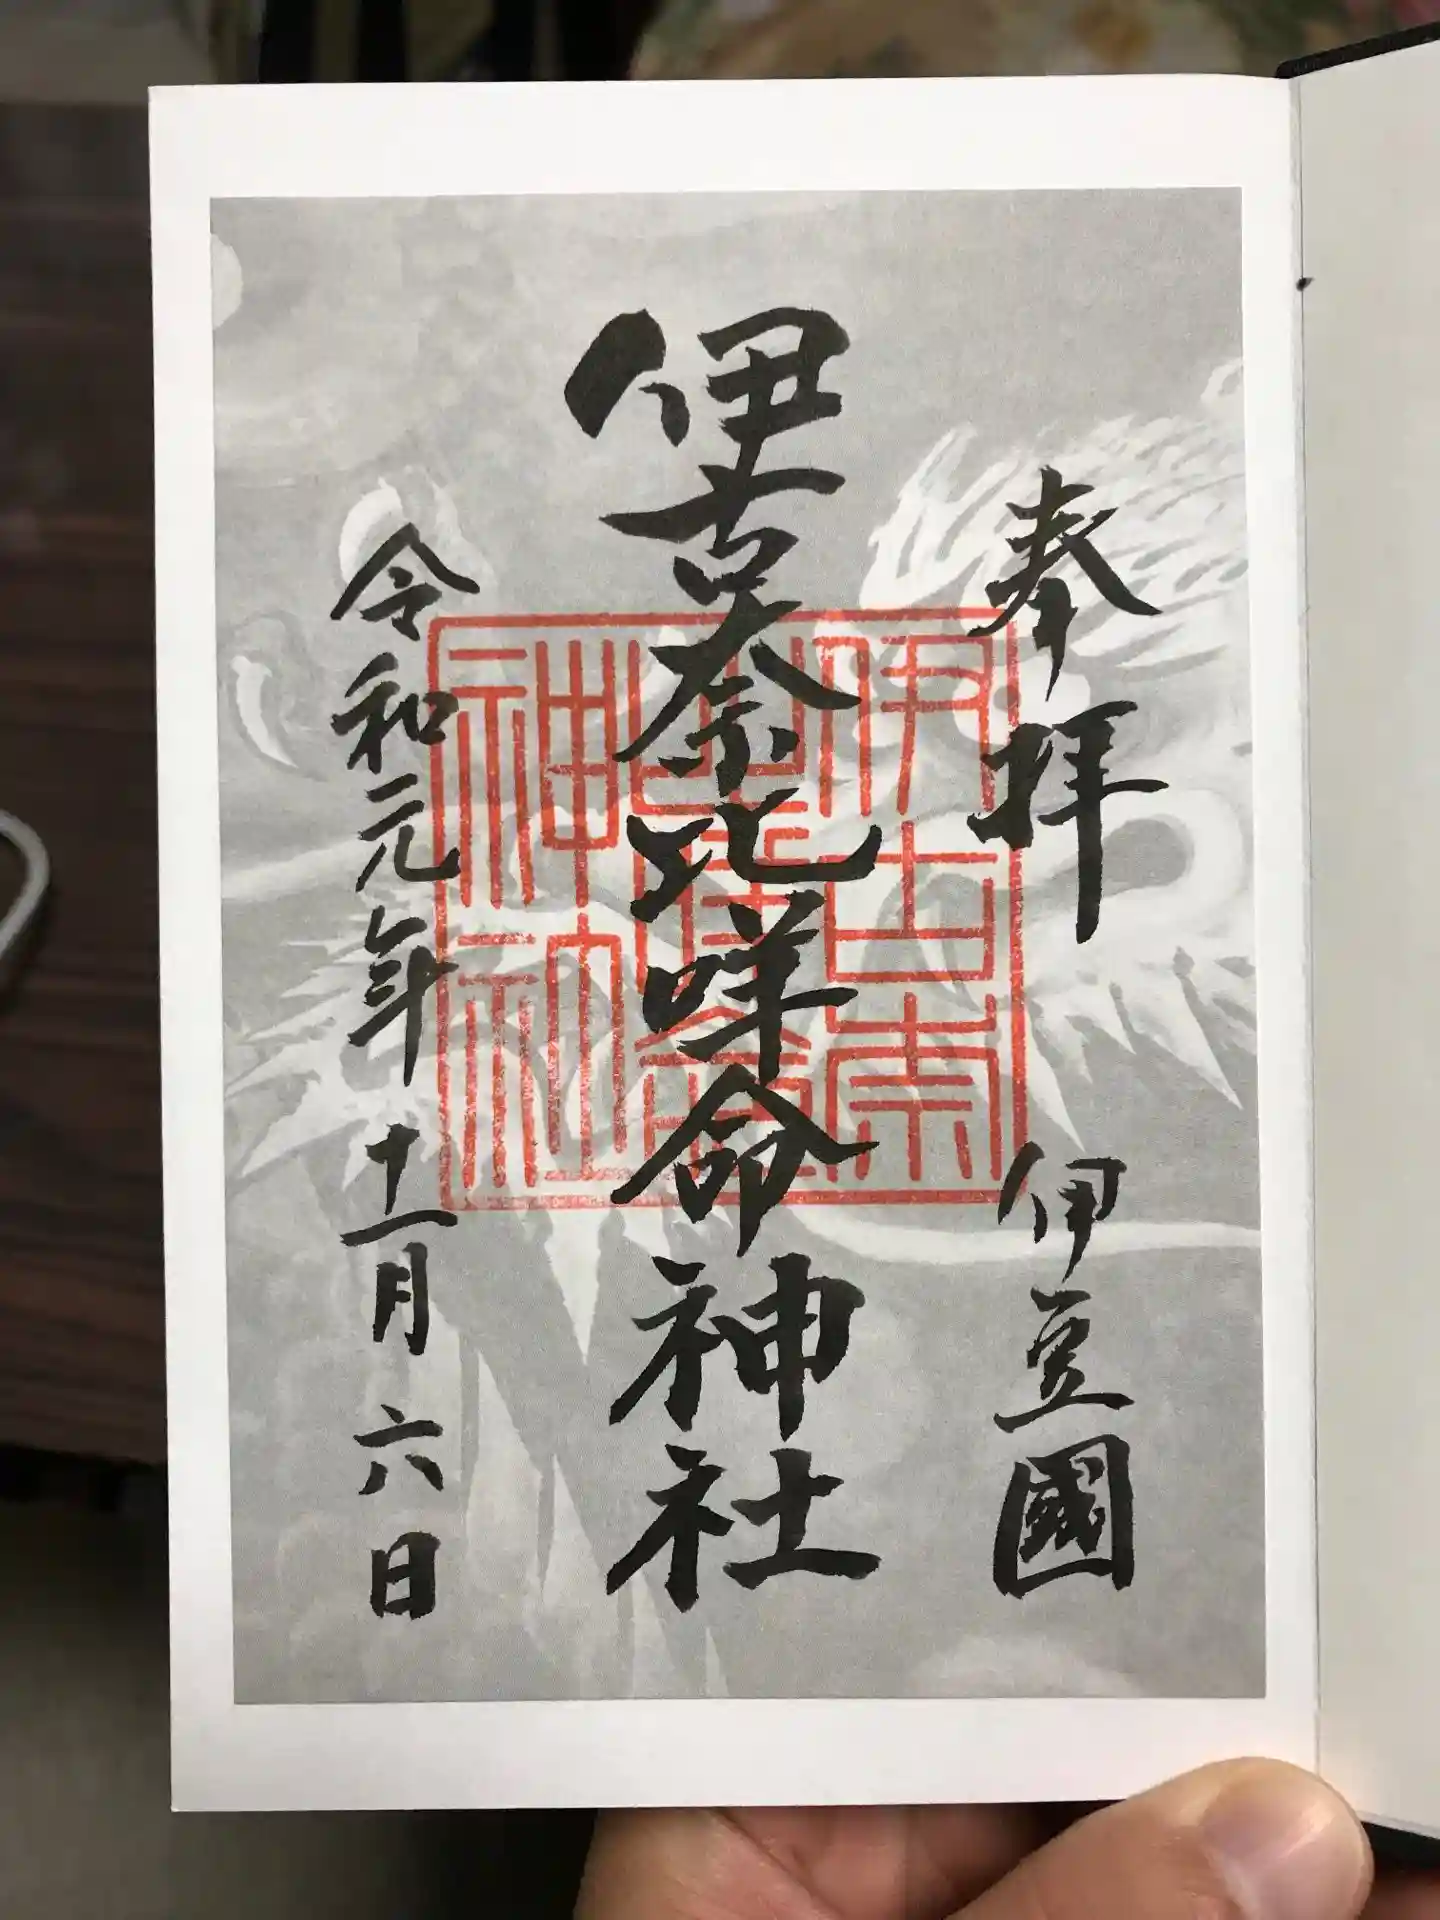 奉拝
伊豆國
伊古奈比咩命神社
伊古奈
比咩命
神社
令和元年十一月六日